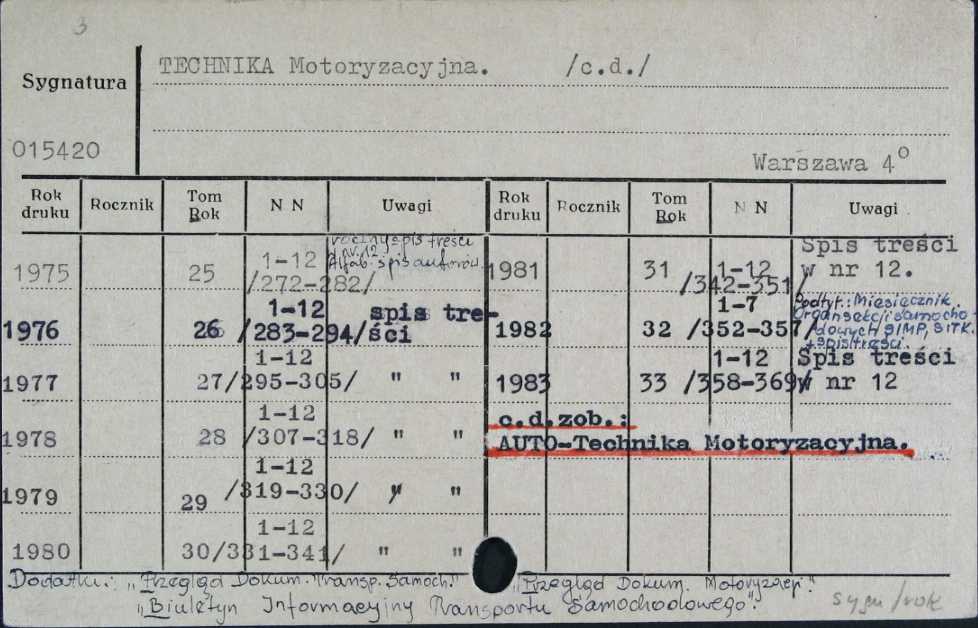 3
TECHNIKA Motoryzacyjna. /c.d./
Sygnatura
015420
Warszawa 4°
Rok druku Rocznik Tom Rok N N Uwagi Rok druku Rocznik Tom Rok N N Uwagi
1975 25 1-12 /272-282/ roczny spis treści w nr 12 Alfab. spis autorów.
1976 26 1-12 /283-294/ spis tre-ści
1977 27 1-12 /295-305/ " "
1978 28 1-12 /307-318/ " "
1979 29 1-12 /319-330/ " "
1980 30 1-12 /331-341/ " "
1981 31 1-12 /342-351/ Spis treści w nr 12.
1982 32 1-7 /352-357/ Podtyt.: Miesięcznik Organ sekcji samochodowych SIMP, SITK. + spis treści.
1983 33 1-12 /358-369/ Spis treści w nr 12
c.d.zob.:
AUTO-Technika Motoryzacyjna.
Dodatki: „Przegląd Dokum. Transp. Samoch." „Przegląd Dokum. Motoryzacji."
„Biuletyn Informacyjny Transportu Samochodowego".
sygn/rok